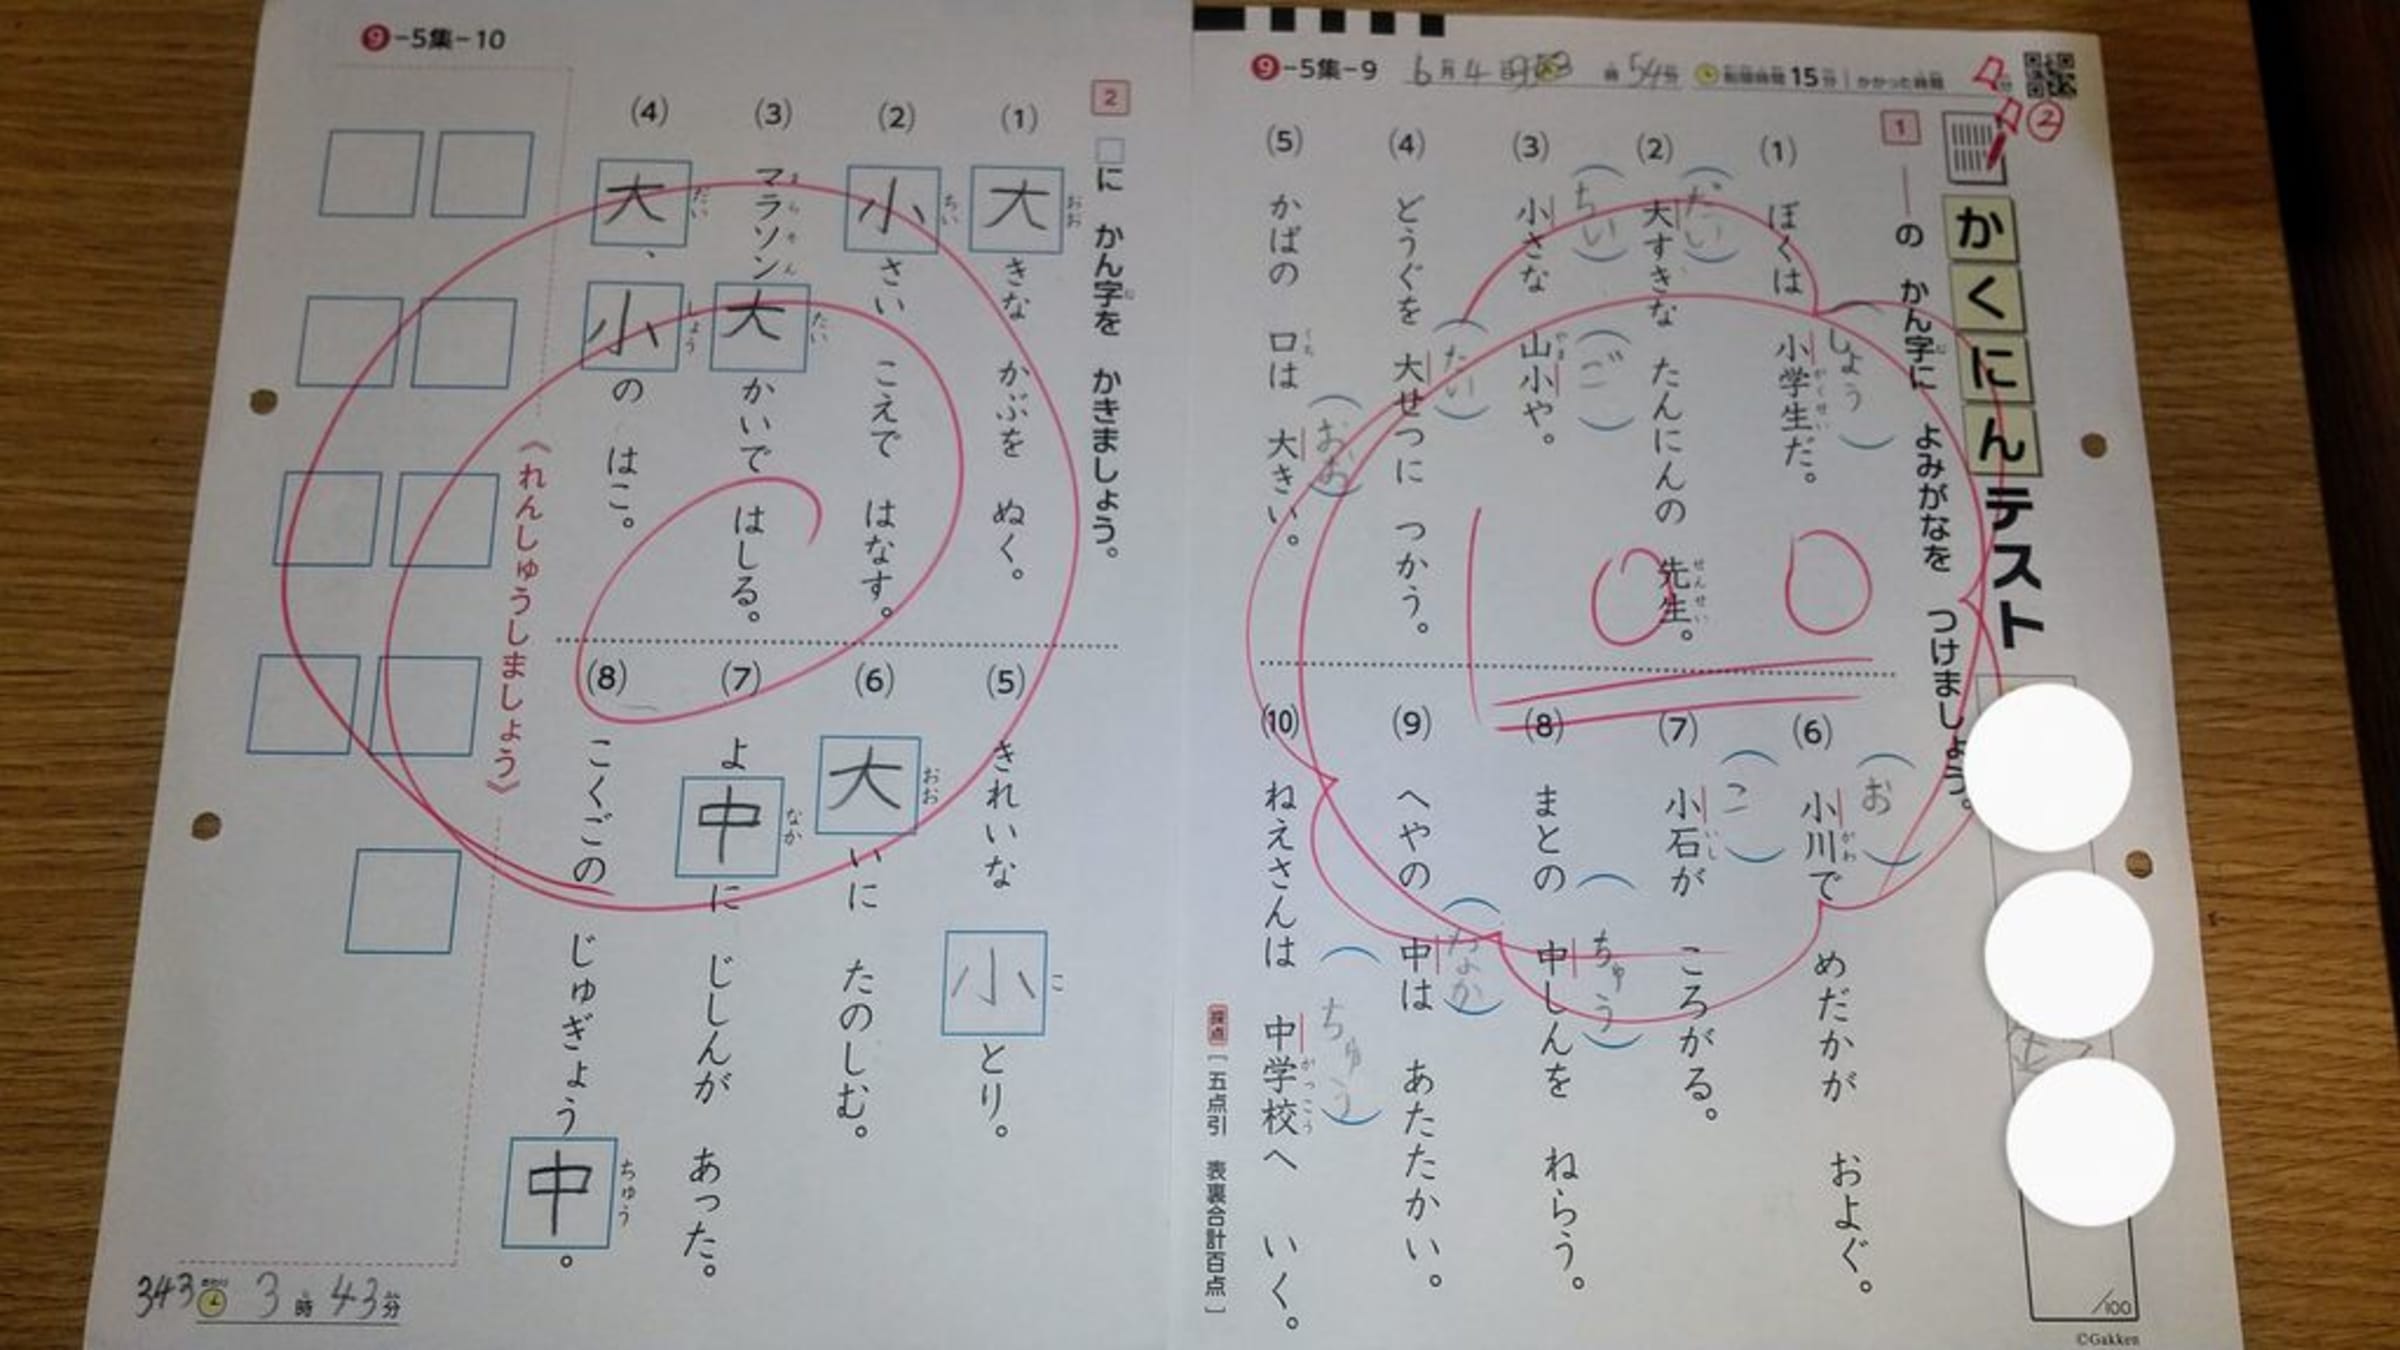 ❾-5集-9
6月4日
54分
制限時間15分
かかった時間
②
かくにんテスト
1 ――の かん字に よみがなを つけましょう。
じ
(1) ぼくは 小学生だ。
しょう がくせい
(2) 大すきな たんにんの 先生。
だい せんせい
(3) 小さな 山小や。
ちい やま ご
(4) どうぐを 大せつに つかう。
たい
(5) かばの 口は 大きい。
くち おお
100
(6) 小川で めだかが およぐ。
お がわ
(7) 小石が ころがる。
こ いし
(8) まとの 中しんを ねらう。
ちゅう
(9) へやの 中は あたたかい。
なか
(10) ねえさんは 中学校へ いく。
ちゅう がっこう
採点［五点引 表裏合計百点］
/100
©Gakken
❾-5集-10
2 □に かん字を かきましょう。
じ
(1) 大きな かぶを ぬく。
おお
(2) 小さい こえで はなす。
ちい
(3) マラソン大かいで はしる。
まらそん たい
(4) 大、小の はこ。
だい しょう
(5) きれいな 小とり。
こ
(6) 大いに たのしむ。
おお
(7) よ中に じしんが あった。
なか
(8) こくごの じゅぎょう中。
ちゅう
《れんしゅうしましょう》
343
3時43分